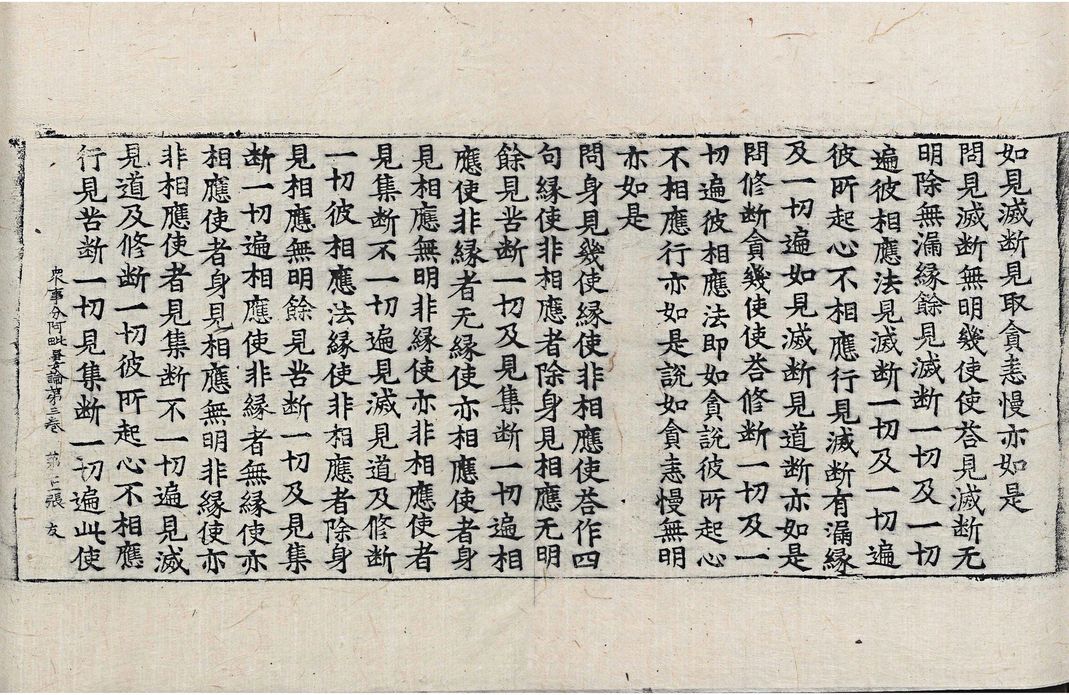 如見滅断見取貪恚慢亦如是
問見滅断無明幾使使荅見滅断无
明除無漏緣餘見滅断一切及一切
遍彼相應法見滅断一切及一切遍
彼所起心不相應行見滅断有漏緣
及一切遍如見滅断見道断亦如是
問修断貪幾使使荅修断一切及一
切遍彼相應法即如貪說彼所起心
不相應行亦如是說如貪恚慢無明
亦如是
問身見幾使緣使非相應使荅作四
句緣使非相應者除身見相應无明
餘見苦断一切及見集断一切遍相
應使非緣者无緣使亦相應使者身
見相應無明非緣使亦非相應使者
見集断不一切遍見滅見道及修断
一切彼相應法緣使非相應者除身
見相應無明餘見苦断一切及見集
断一切遍相應使非緣者無緣使亦
相應使者身見相應無明非緣使亦
非相應使者見集断不一切遍見滅
見道及修断一切彼所起心不相應
行見苦断一切見集断一切遍此使
衆事分阿毗曇論第三卷 第 張 友